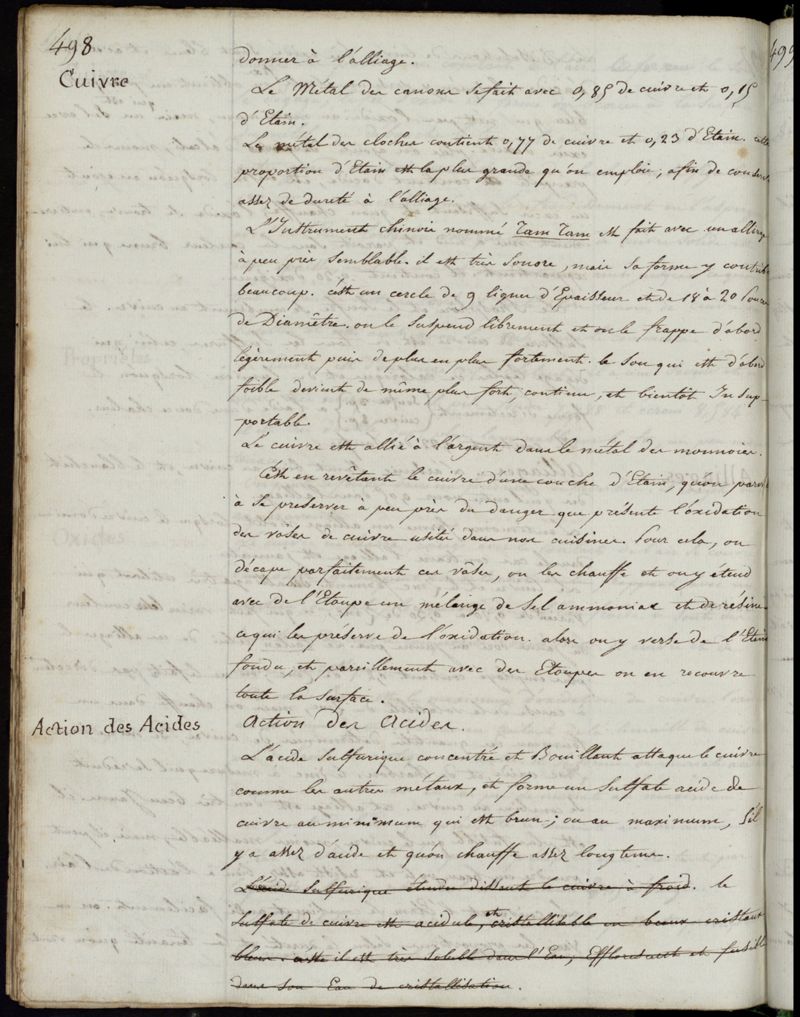 498
Cuivre
donner à l'alliage.
Le Métal des canons se fait avec 0,85 de cuivre et 0,15
d'Etain.
Le métal des cloches contient 0,77 de cuivre et 0,23 d'Etain. cette
proportion d'Etain est la plus grande qu'on emploie, afin de conserv
assez de dureté à l'alliage.
L'Instrument chinois nommé Tam Tam est fait avec un alliage
à peu près semblable. il est très sonore, mais sa forme y contribu
beaucoup. c'est un cercle de 9 lignes d'Epaisseur et de 18 à 20 Pouces
de Diamêtre. on le suspend librement et on le frappe d'abord
légèrement puis de plus en plus fortement. le son qui est d'abord
foible devient de même plus fort, continu, et bientôt Insup-
portable.
Le cuivre est allié à l'argent dans le métal des monnoies.
C'est en revêtant le cuivre d'une couche d'Etain, qu'on parvient
à se préserver à peu près du danger que présent l'óxidation
des vâses de cuivre usités dans nos cuisines. Pour cela, on
décape parfaitement ces vâses, on les chauffe et on y étend
avec de l'Etoupe un mélange de sel ammoniac et de résine
ce qui les préserve de l'óxidation. alors on y verse de l'Etain
fondu, et pareillement avec des Etoupes on en recouvre
toute la surface.
Action des Acides
Action des acides.
L'acide sulfurique concentré et Bouillant attaque le cuivre
comme les autres métaux, et forme un sulfate acide de
cuivre au minimum qui est brun; ou au maximum, s'il
y a assez d'acide et qu'on chauffe assez longtems.
L'acide sulfurique étendu dissout le cuivre à froid. le
sulfate de cuivre est acidule, et cristallisable en beaux cristaux
bleus. il est très soluble dans l'Eau, Efflorescent et fusible
dans son Eau de cristallisation.
499